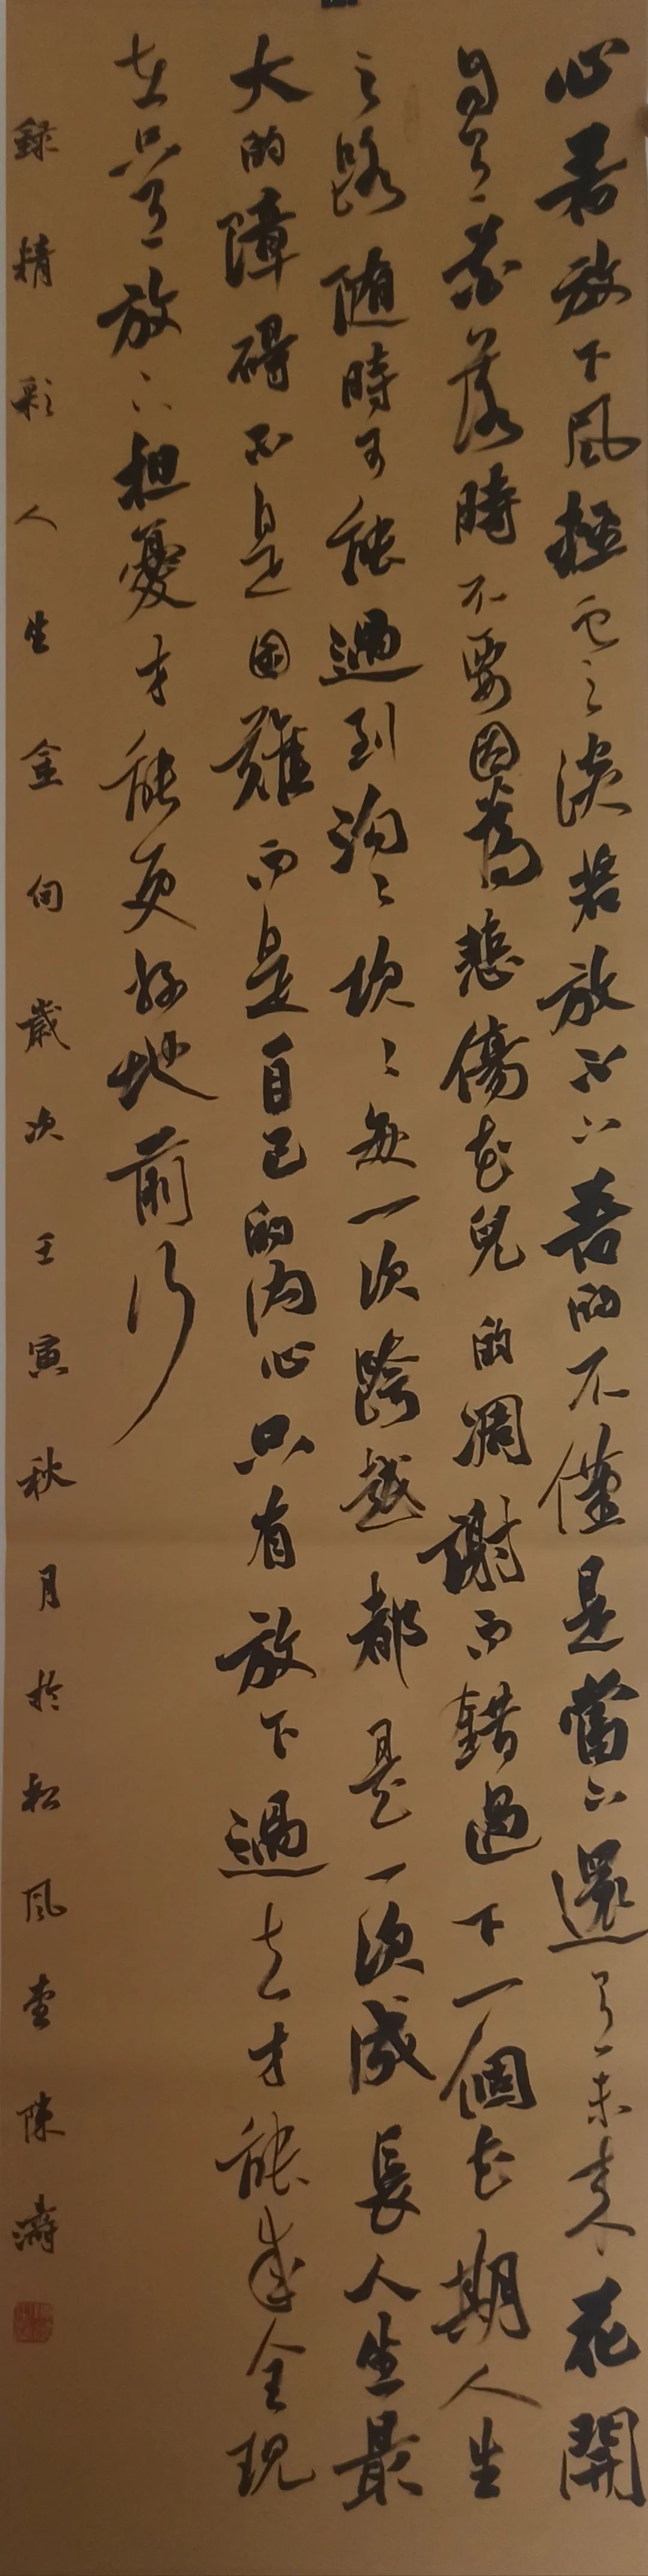 心若放下風極也之淡若放不下苦的不僅是當下還有未來花開
自有花落時不要因為悲傷花兒的凋謝而錯過下一個花期人生
之路隨時可能遇到溝溝坎坎每一次跨越都是一次成長人生最
大的障碍不是困難而是自己的內心只有放下過去才能成全現
在只有放下担憂才能更好地前行
錄精彩人生金句歲次壬寅秋月於松風堂陳濤